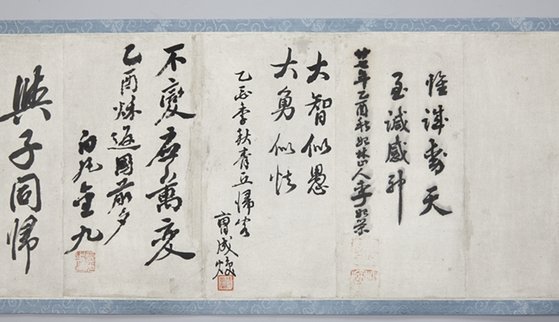 惟誠動天
至誠感神
廿七年乙酉秋 林山人李榮
大智似愚
大勇似怯
乙酉季秋青丘歸客
曺成煥
不變應萬變
乙酉秌返國前夕
白凡金九
與子同歸